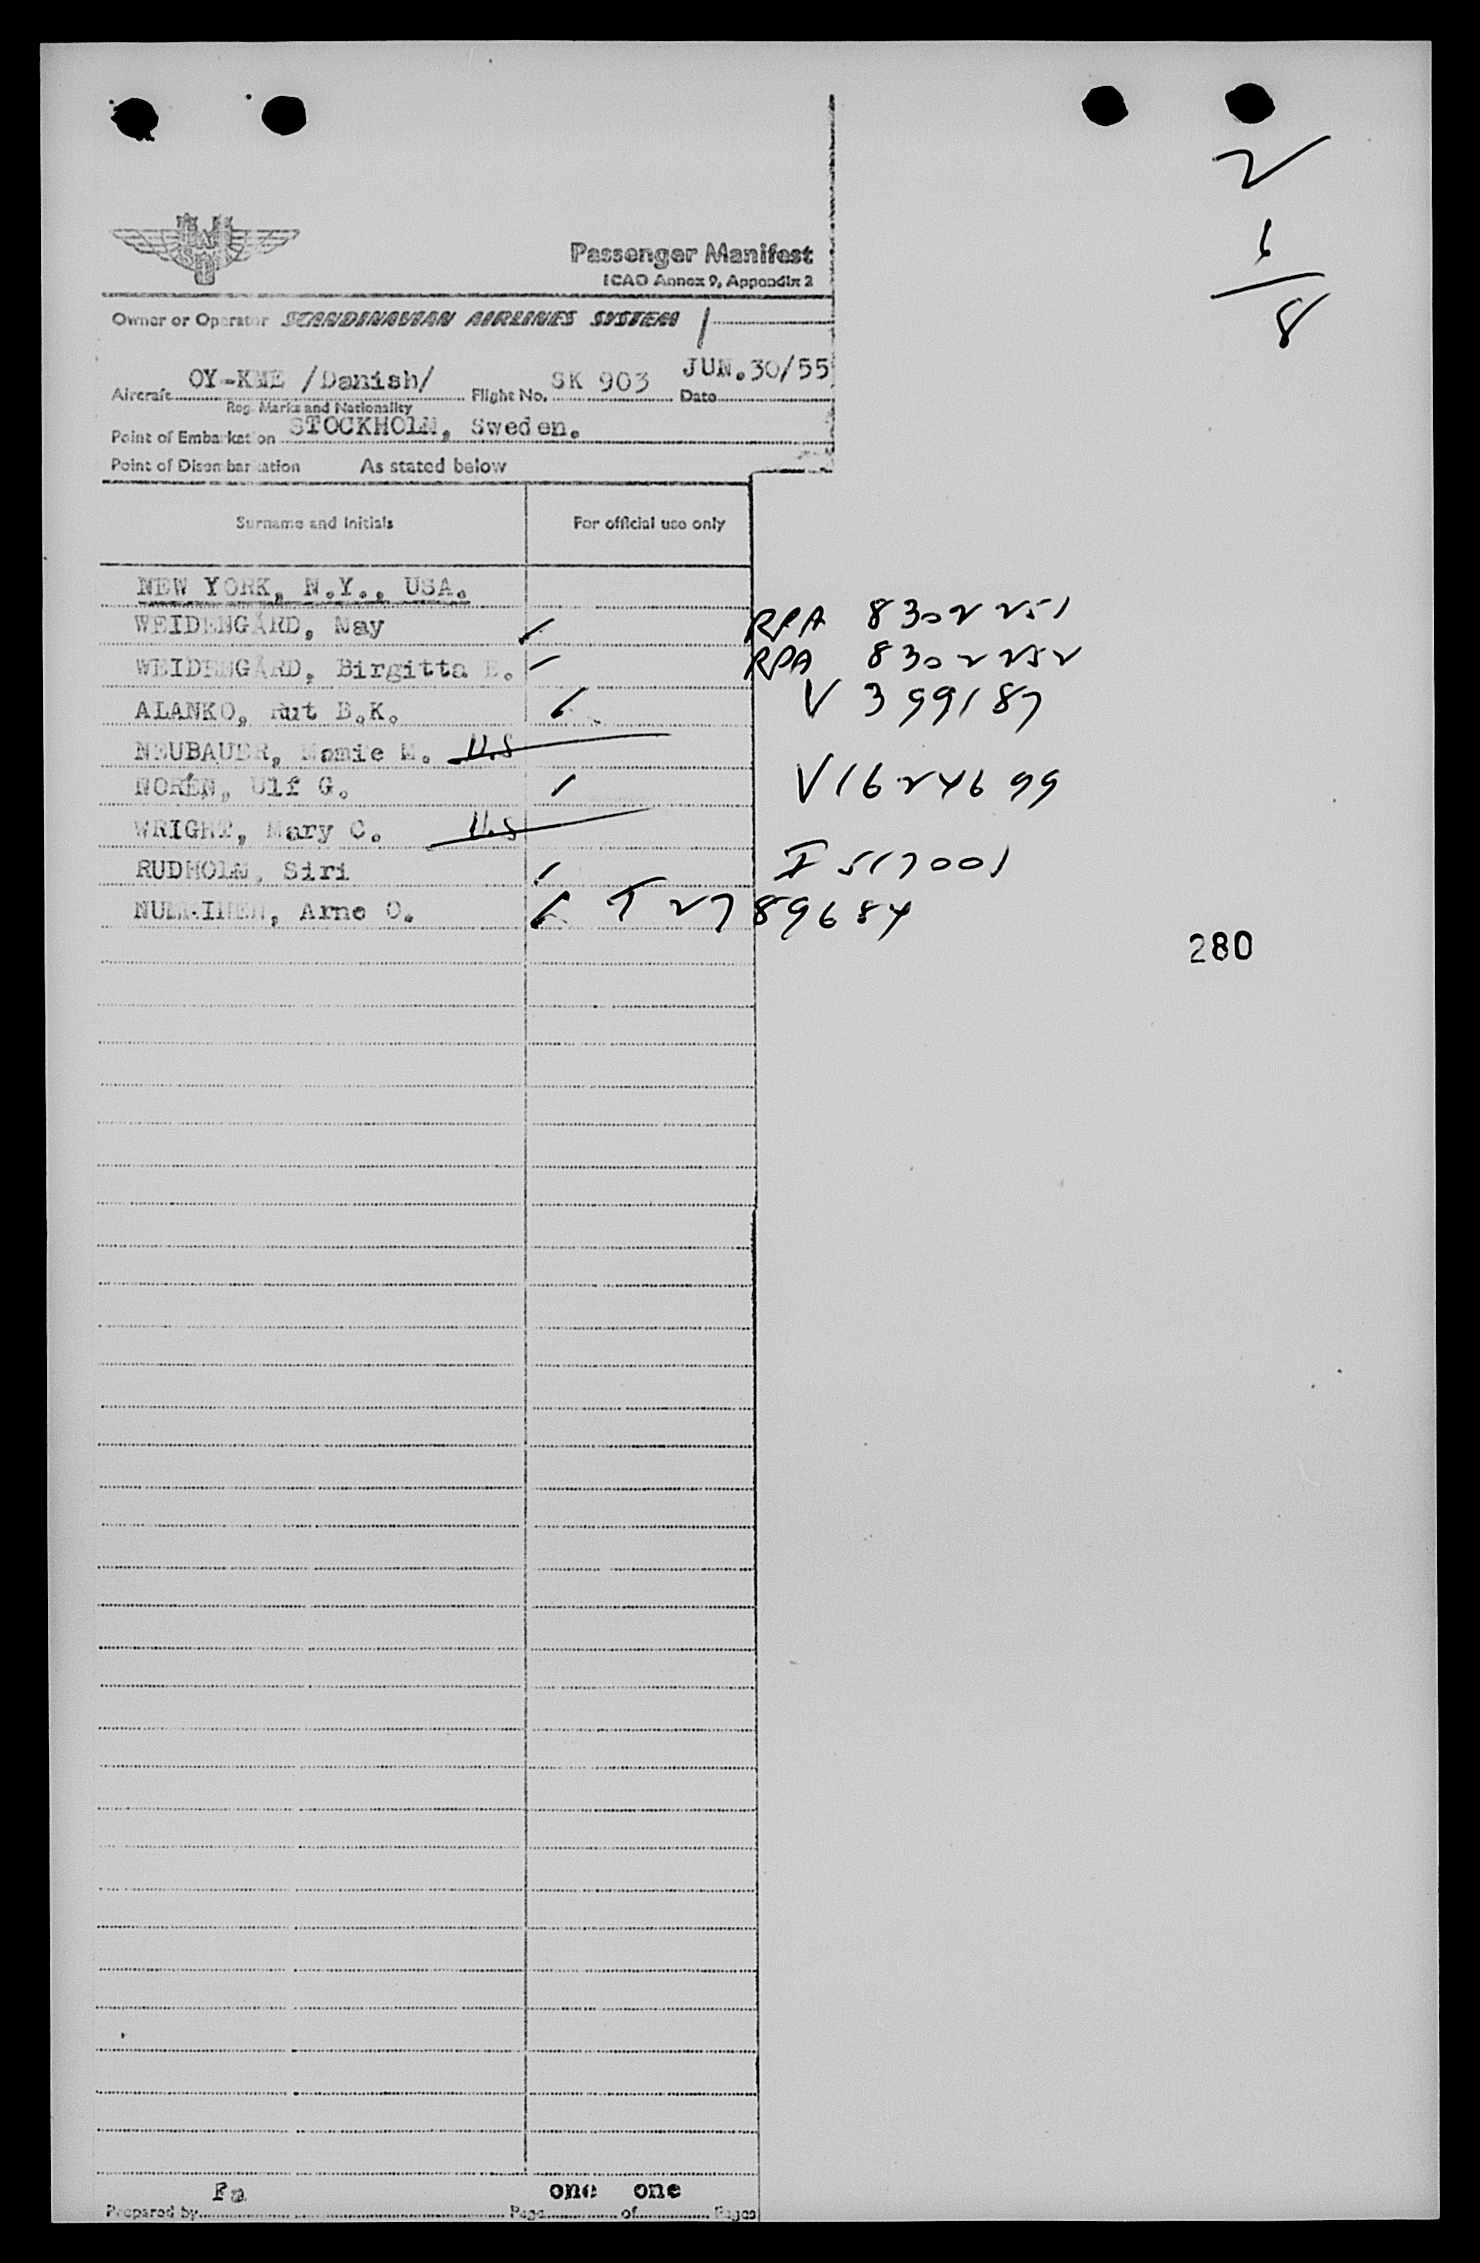 2
6
8
Passenger Manifest
ICAO Annex 9, Appendix 2
Owner or Operator SCANDINAVIAN AIRLINES SYSTEM
Aircraft OY-KME /Danish/ Flight No. SK 903 Date JUN.30/55
Reg. Marks and Nationality
Point of Embarkation STOCKHOLM, Sweden.
Point of Disembarkation As stated below
Surname and Initials For official use only
NEW YORK, N.Y., USA.
WEIDENGÅRD, May RPA 8302251
WEIDENGÅRD, Birgitta E. RPA 8302252
ALANKO, Rut B.K. V 399187
NEUBAUER, Mamie M. U.S
NORÉN, Ulf G. V1624699
WRIGHT, Mary C. U.S
RUDHOLM, Siri I 517001
NUMMINEN, Arne O. T 2789684
280
Prepared by Fa Page one of one Pages